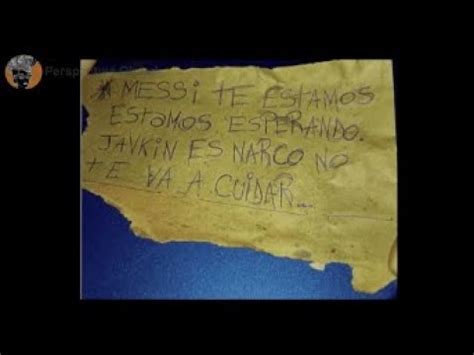 MESSI TE EStAMOS
EStaMOS ESPERANDO.
JAVKIN ES NARCO NO
tE VA A CUIDAR...